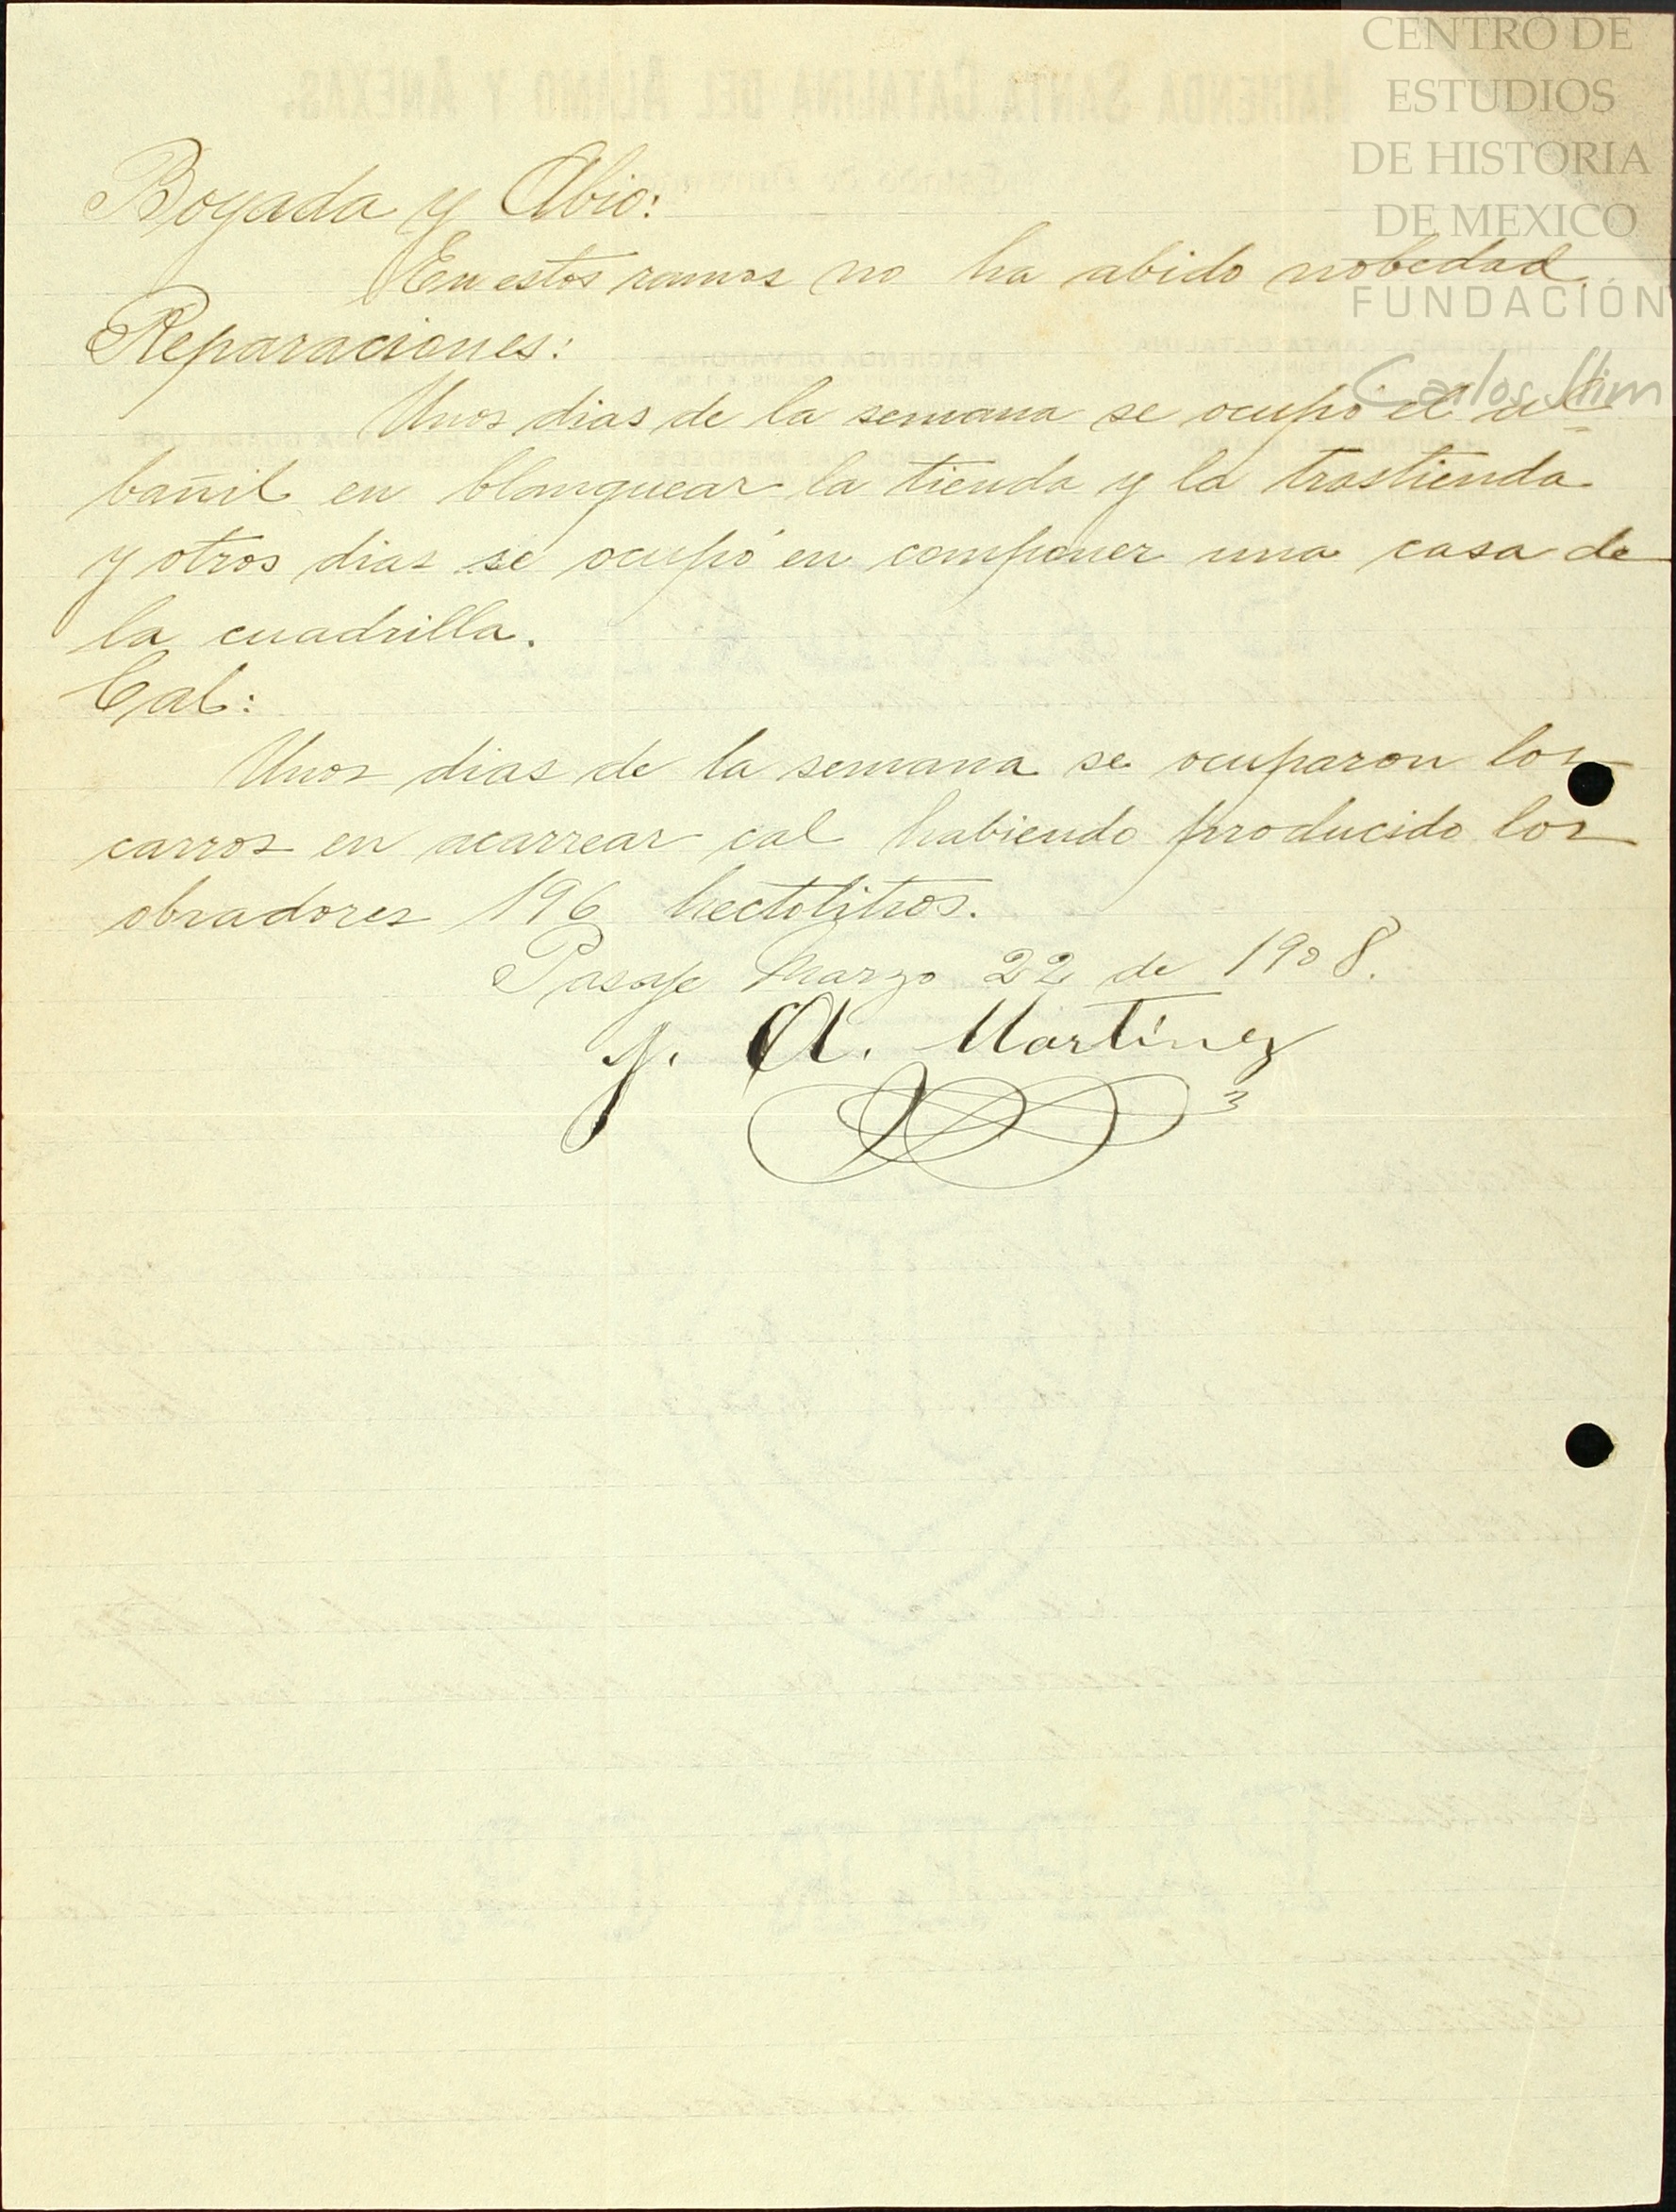 CENTRO DE
ESTUDIOS
DE HISTORIA
DE MEXICO
FUNDACIÓN
Carlos Slim
HACIENDA SANTA CATALINA DEL ALAMO Y ANEXAS.
Boyada y Abio:
En estos ramos no ha abido nobedad.
Reparaciones:
Unos dias de la semana se ocupó el al=
bañil en blanquear la tienda y la trastienda
y otros dias se ocupó en componer una casa de
la cuadrilla.
Cal:
Unos dias de la semana se ocuparon los
carros en acarrear cal habiendo producido los
obradores 196 hectolitros.
Pasaje Marzo 22 de 1908.
J. A. Martínez